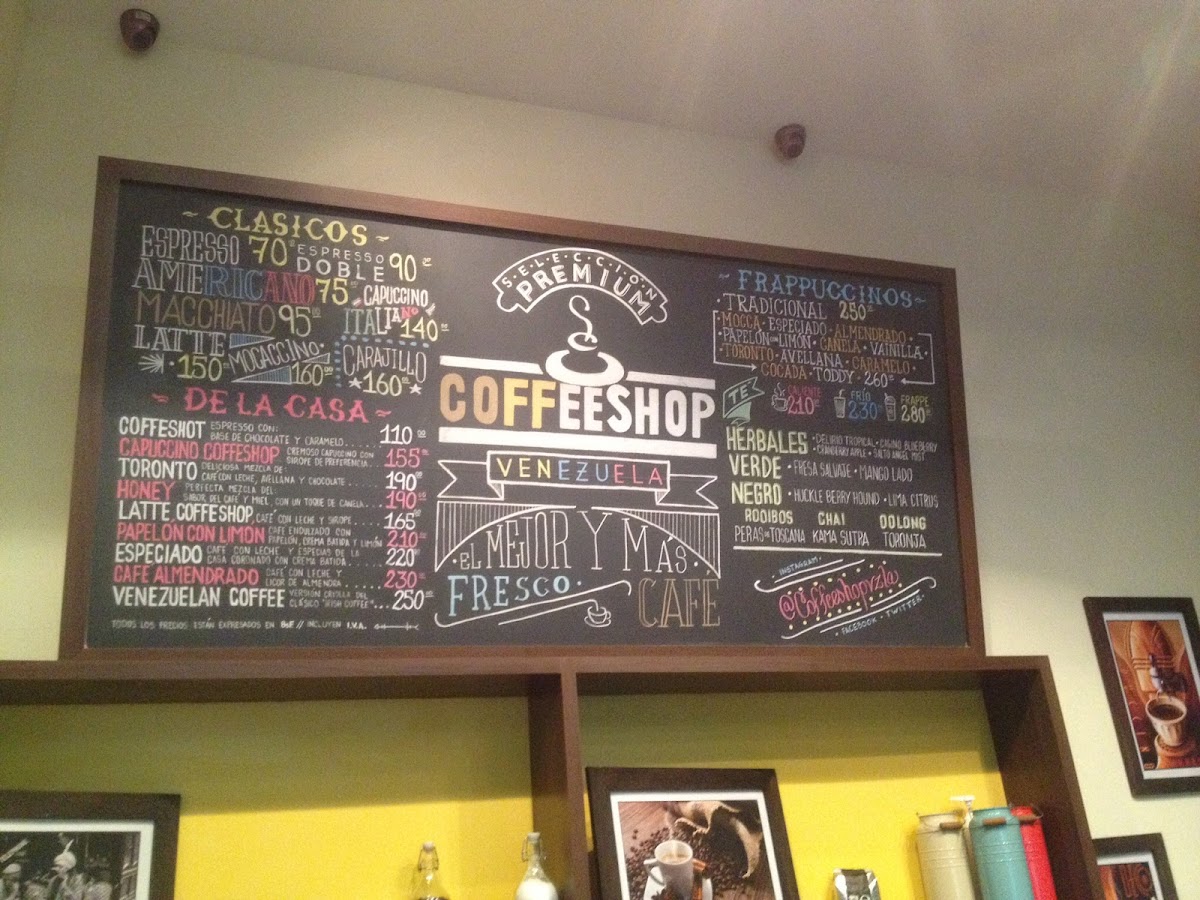 ~ CLASICOS ~
ESPRESSO 70
ESPRESSO DOBLE 90
AMERICANO 75
CAPUCCINO ITALIANO 140
MACCHIATO 95
LATTE 150
MOCACCINO 160
CARAJILLO 160
~ DE LA CASA ~
COFFESHOT ESPRESSO CON: BASE DE CHOCOLATE Y CARAMELO..... 110
CAPUCCINO COFFESHOP CREMOSO CAPUCCINO CON SIROPE DE PREFERENCIA... 155
TORONTO DELICIOSA MEZCLA DE: CAFÉ CON LECHE, AVELLANA Y CHOCOLATE.... 190
HONEY PERFECTA MEZCLA DEL: SABOR DEL CAFÉ Y MIEL, CON UN TOQUE DE CANELA... 190
LATTE COFFE'SHOP CAFÉ CON LECHE Y SIROPE.... 165
PAPELON CON LIMON CAFÉ ENDULZADO CON PAPELÓN, CREMA BATIDA Y LIMÓN 210
ESPECIADO CAFÉ CON LECHE Y ESPECIAS DE LA CASA CORONADO CON CREMA BATIDA... 220
CAFÉ ALMENDRADO CAFÉ CON LECHE Y LICOR DE ALMENDRA..... 230
VENEZUELAN COFFEE VERSIÓN CRIOLLA DEL CLÁSICO "IRISH COFFEE"... 250
TODOS LOS PRECIOS ESTÁN EXPRESADOS EN BsF // INCLUYEN I.V.A.
SELECCION
PREMIUM
COFFEESHOP
VENEZUELA
EL MEJOR Y MÁS
FRESCO CAFE
~ FRAPPUCCINOS ~
TRADICIONAL 250
MOCCA · ESPECIADO · ALMENDRADO
· PAPELÓN CON LIMÓN · CANELA · VAINILLA
TORONTO · AVELLANA · CARAMELO
COCADA · TODDY · 260
TE CALIENTE 210 FRÍO 230 FRAPPE 280
HERBALES · DELIRIO TROPICAL · CASINO BLUEBERRY
· CRANBERRY APPLE · SALTO ANGEL MIST
VERDE · FRESA SALVAGE · MANGO LADO
NEGRO · HUCKLE BERRY HOUND · LIMA CITRUS
ROOIBOS CHAI OOLONG
PERAS DE TOSCANA KAMA SUTRA TORONJA
INSTAGRAM
@Coffeeshopvzla
FACEBOOK · TWITTER